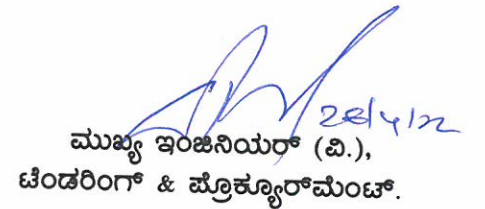 28/4/22
ಮುಖ್ಯ ಇಂಜಿನಿಯರ್ (ವಿ.),
ಟೆಂಡರಿಂಗ್ & ಪ್ರೊಕ್ಯೂರ್‌ಮೆಂಟ್.